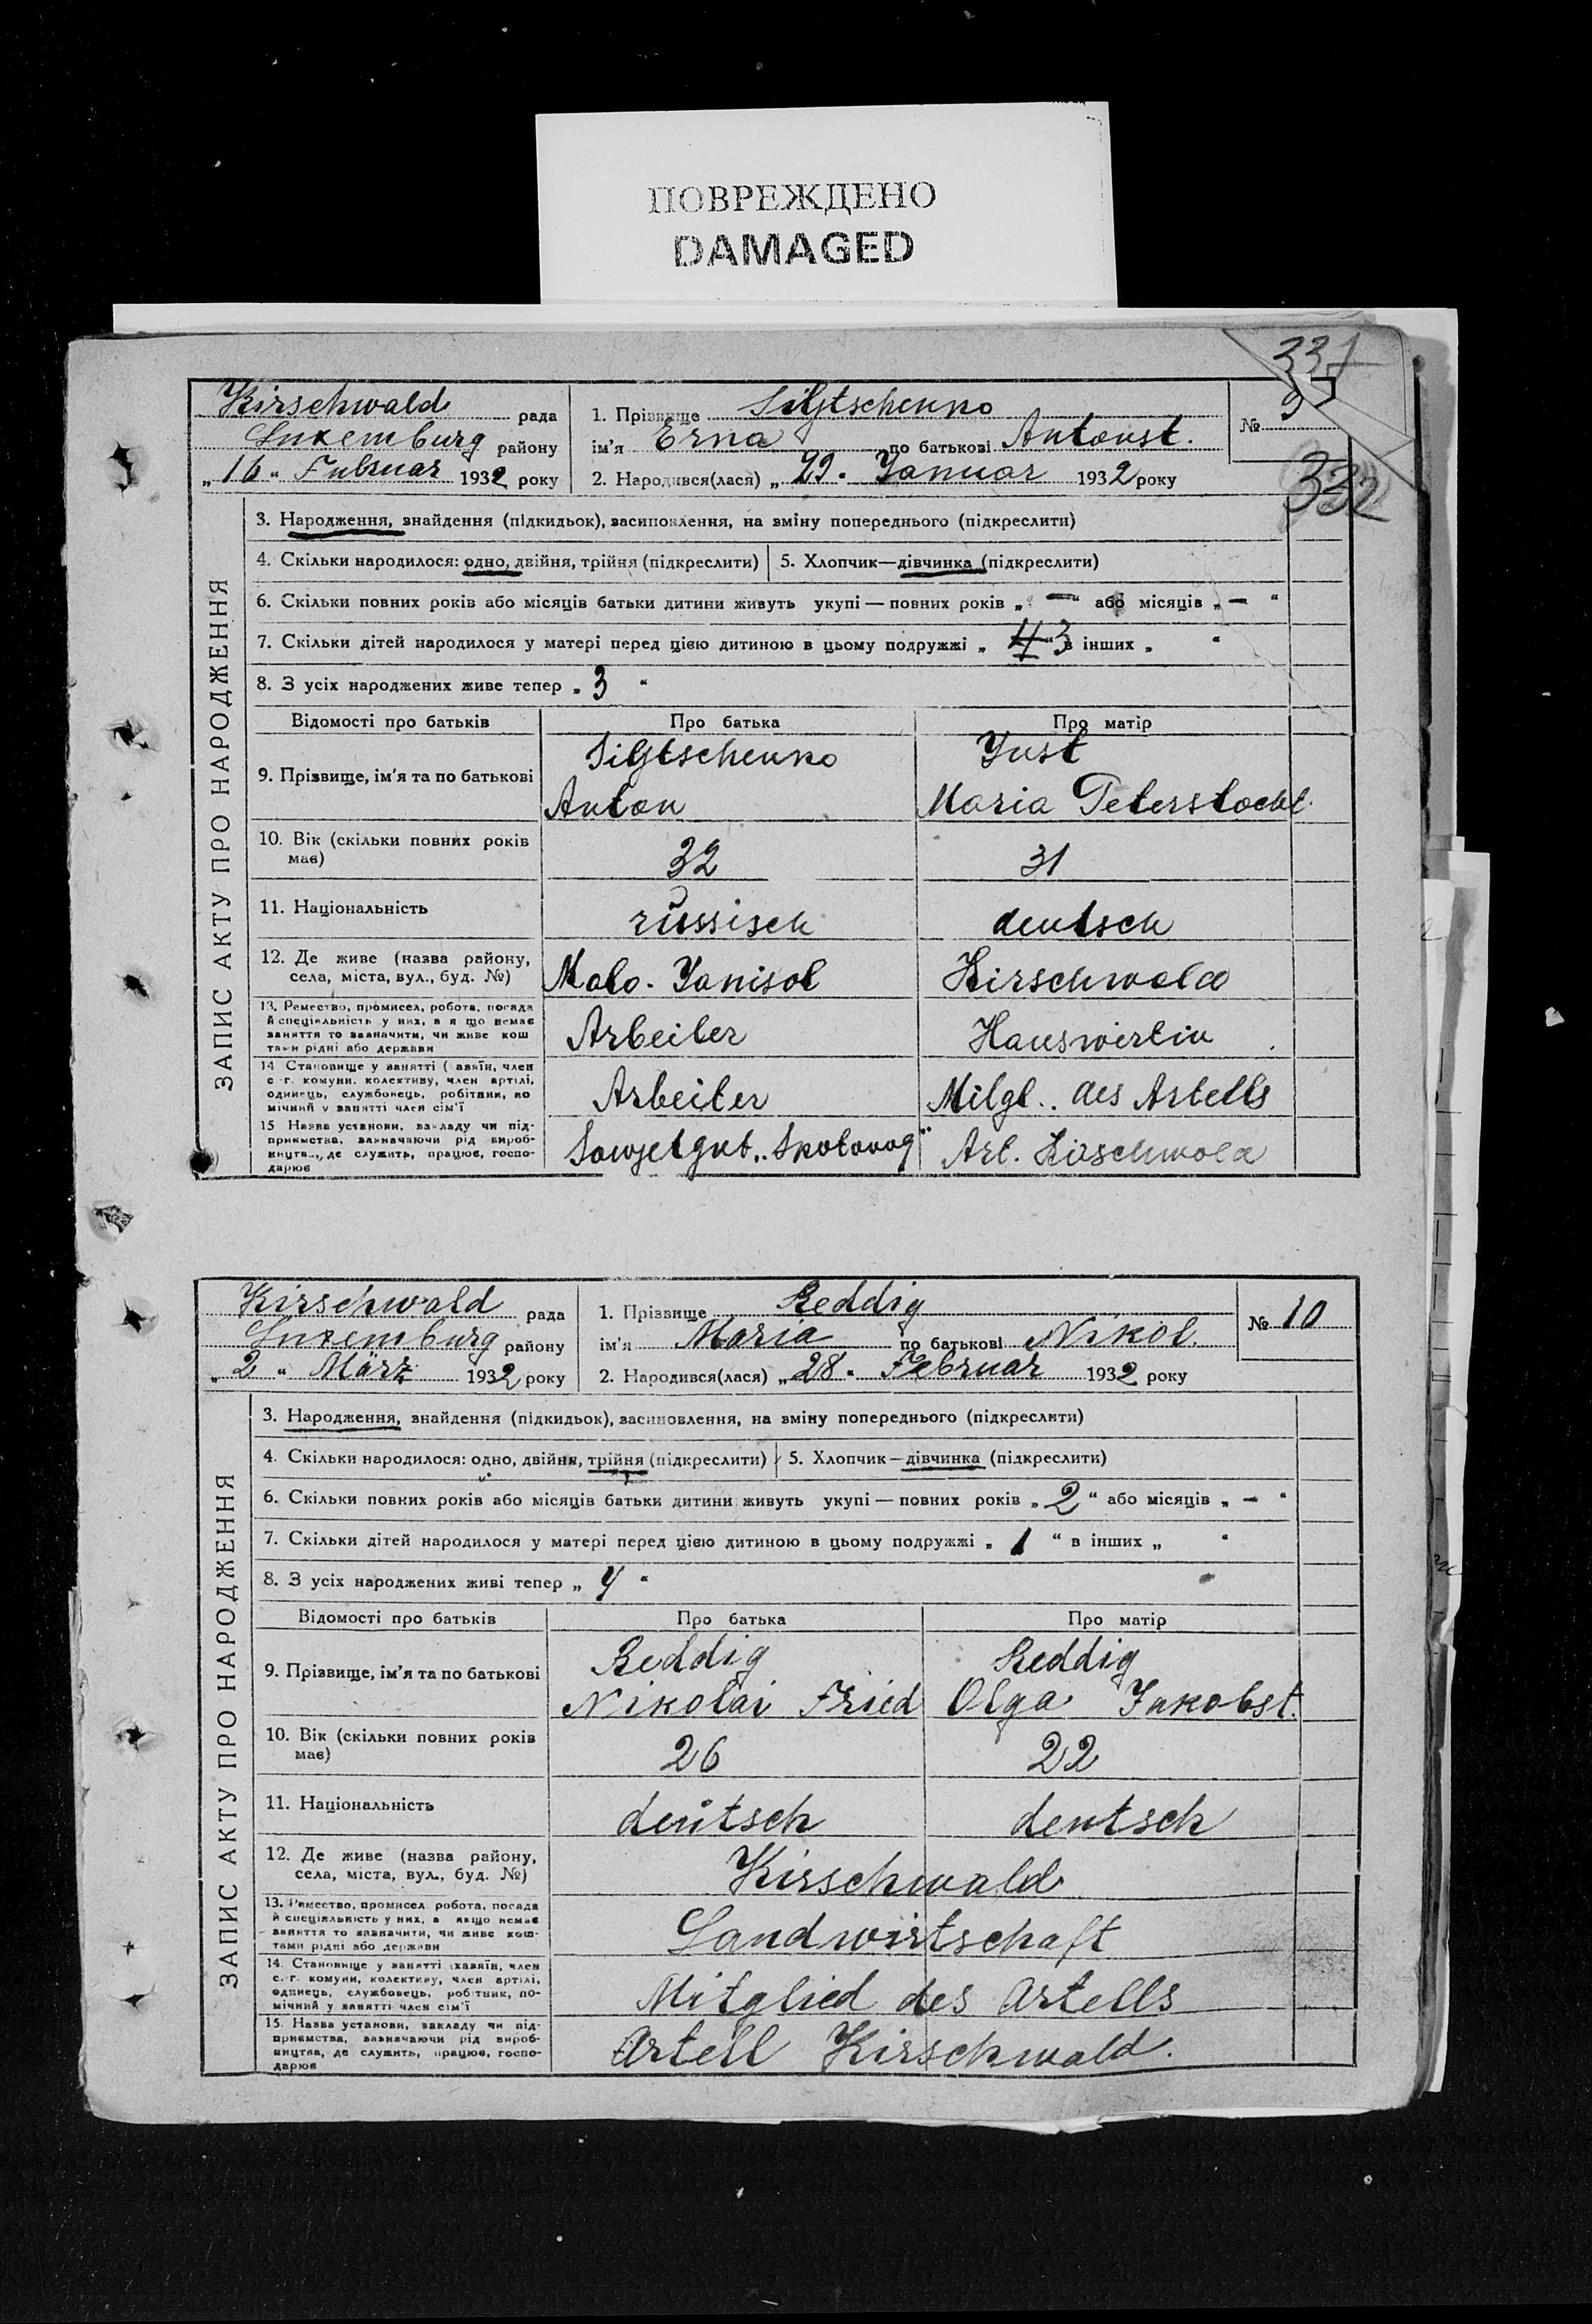 ПОВРЕЖДЕНО
DAMAGED
331
Kirschwald рада
Luxemburg району
„16“ Februar 1932 року
1. Прізвище Siljtschenko
ім'я Erna по батькові Antonst.
2. Народився(лася) „29“ Januar 1932 року
№ 9
332
ЗАПИС АКТУ ПРО НАРОДЖЕННЯ
3. Народження, знайдення (підкидьок), засиновлення, на зміну попереднього (підкреслити)
4. Скільки народилося: одно, двійня, трійня (підкреслити) 5. Хлопчик—дівчинка (підкреслити)
6. Скільки повних років або місяців батьки дитини живуть укупі — повних років „—“ або місяців „—“
7. Скільки дітей народилося у матері перед цією дитиною в цьому подружжі „ 4 3 в інших „ “
8. З усіх народжених живе тепер „ 3 “
Відомості про батьків Про батька Про матір
9. Прізвище, ім'я та по батькові
Siljtschenko Just
Anton Maria Peterstocht.
10. Вік (скільки повних років має) 32 31
11. Національність russisch deutsch
12. Де живе (назва району, села, міста, вул., буд. №) Malo-Janisol Kirschwald
13. Ремество, промисел, робота, посада
й спеціяльність у них, а якщо немає
заняття то зазначити, чи живе кош
тами рідні або держави
Arbeiter Hauswirtin
14 Становище у занятті (хазяїн, член
с.-г. комуни, колективу, член артілі,
одинець, службовець, робітник, по
мічний у занятті член сім'ї
Arbeiter Mitgl. des Artells
15 Назва установи, закладу чи під-
приємства, зазначаючи рід вироб-
ництва, де служить, працює, госпо-
дарює
Sowjetgut „Skotowog“ Art. Kirschwald
Kirschwald рада
Luxemburg району
„2“ März 1932 року
1. Прізвище Reddig
ім'я Maria по батькові Nikol.
2. Народився(лася) „28“ Februar 1932 року
№ 10
ЗАПИС АКТУ ПРО НАРОДЖЕННЯ
3. Народження, знайдення (підкидьок), засиновлення, на зміну попереднього (підкреслити)
4. Скільки народилося: одно, двійня, трійня (підкреслити) 5. Хлопчик—дівчинка (підкреслити)
6. Скільки повних років або місяців батьки дитини живуть укупі — повних років „2“ або місяців „—“
7. Скільки дітей народилося у матері перед цією дитиною в цьому подружжі „ 1 “ в інших „ “
8. З усіх народжених живі тепер „ 4 “
Відомості про батьків Про батька Про матір
9. Прізвище, ім'я та по батькові
Reddig Reddig
Nikolai Fried Olga Jakobst.
10. Вік (скільки повних років має) 26 22
11. Національність deutsch deutsch
12. Де живе (назва району, села, міста, вул., буд. №) Kirschwald
13. Ремество, промисел робота, посада
й спеціяльність у них, а якщо немає
заняття то зазначити, чи живе кош-
тами рідні або держави
Landwirtschaft
14. Становище у занятті (хазяїн, член
с.-г. комуни, колективу, член артілі,
одинець, службовець, робітник, по-
мічний у занятті член сім'ї
Mitglied des Artells
15. Назва установи, закладу чи під-
приємства, зазначаючи рід вироб-
ництва, де служить, працює, госпо-
дарює
Artell Kirschwald.